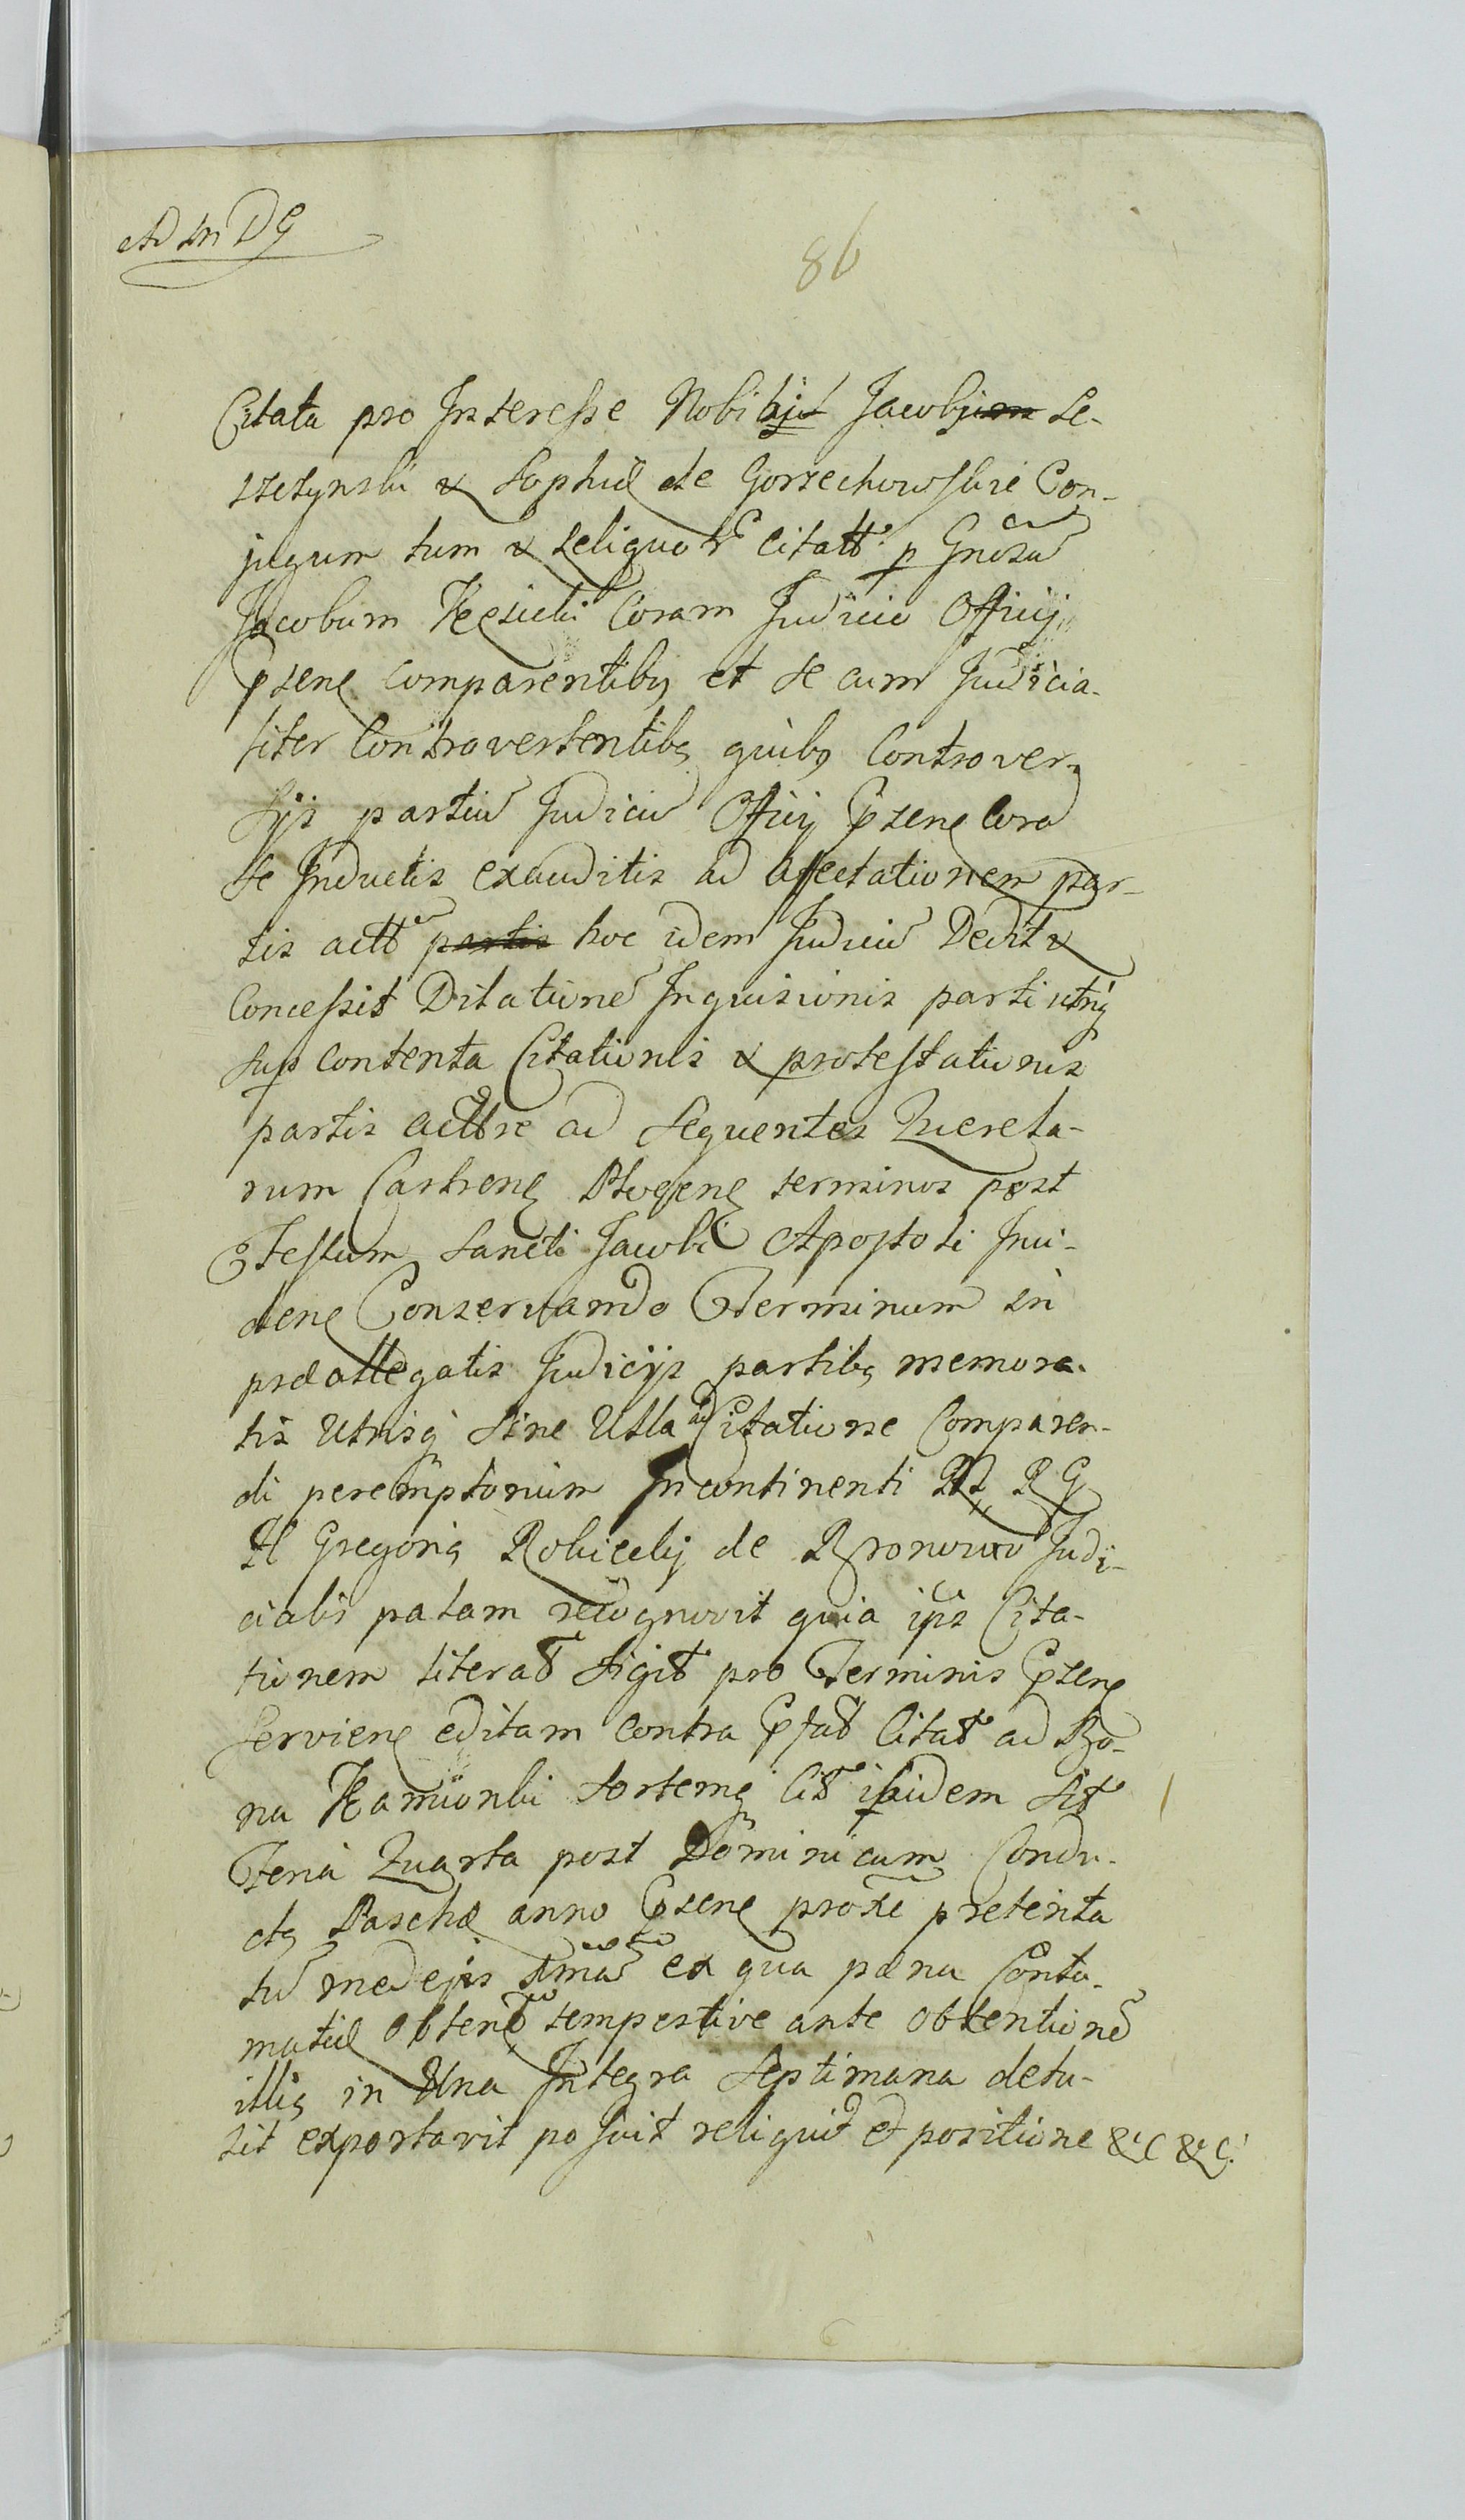 Ad In DG
86
Citata pro Interesse Nobilju Jacobj Le-
szczynski & Sophiæ de Gorzechowskie Con-
jugum tum & Reliquor Citatt p Gnosu
Jacobum Kęsicki Coram Judicio Officij
Psene comparentibq et se cum Judicia-
liter Controvertentibq quibq Controver-
sijs partiu Judiciu Officij Psene Cora
Se Inductis exauditis ad affectationem par-
tis actt partis hoc idem Judiciu Dedit &
Concessit Dilatione Inquisionis parti utriq
Sup contenta Citationis & protestationis
partis acttre ad Sequentes Querela-
rum Castrens terminos post
Festum Sancti Jacobi Apostoli Inci-
dene Conservando Terminum in
præallegatis Judicijs partibq memora-
tis Utrisq Sine Ulla ad Citatione Comparen-
di peremptorium Incontinenti RG
Gregoriq Robiecky de Judi-
cialis palam recognovit quia ipis Cita-
tionem literat Sigit pro Terminis Psene
Serviene editam contra Pfat Citat ad Bo-
na Kamionki Sortemq Cit ibidem Sit
Feria Quarta post Dominicam Condu-
ctq Paschæ anno Psene proxe preterita
tu ex qua pæna Contu-
matiæ obtene tempestive ante obtentione
illiq in Una Integra Septimana detu-
lit exportavit posuit reliquit et positione &c &c